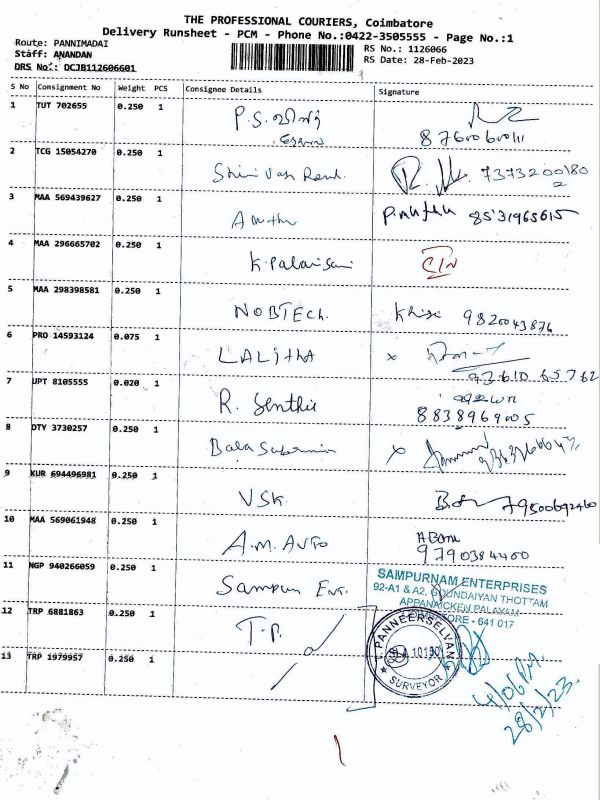 THE PROFESSIONAL COURIERS, Coimbatore
Delivery Runsheet - PCM - Phone No.:0422-3505555 - Page No.:1
Route: PANNIMADAI
Staff: ANANDAN
DRS No.: DCJB112606601
RS No.: 1126066
RS Date: 28-Feb-2023
S No Consignment No Weight PCS Consignee Details Signature
1 TUT 702655 0.250 1 P.S.
8760060011
2 TCG 15054270 0.250 1 7373200180
3 MAA 569439627 0.250 1 8531965615
4 MAA 296665702 0.250 1 K.Palanisami
5 MAA 298398581 0.250 1 NOBTECh. 9820043876
6 PRO 14593124 0.075 1 LALitHA x
93610 65762
7 UPT 8105555 0.020 1 R. Senthil
8838969005
8 DTY 3730257 0.250 1 x
9 KUR 694496981 0.250 1 VSK 79500692460
10 MAA 569061948 0.250 1 A.M. AUTO
9790384400
11 NGP 940266059 0.250 1 Sampun Ent.
SAMPURNAM ENTERPRISES
92-A1 & A2, GOUNDAIYAN THOTTAM
APPANAICKEN PALAYAM
COIMBATORE - 641 017
12 TRP 6881863 0.250 1 T.P.
PANNEERSELVAM
SURVEYOR
13 TRP 1979957 0.250 1
28/2/23.